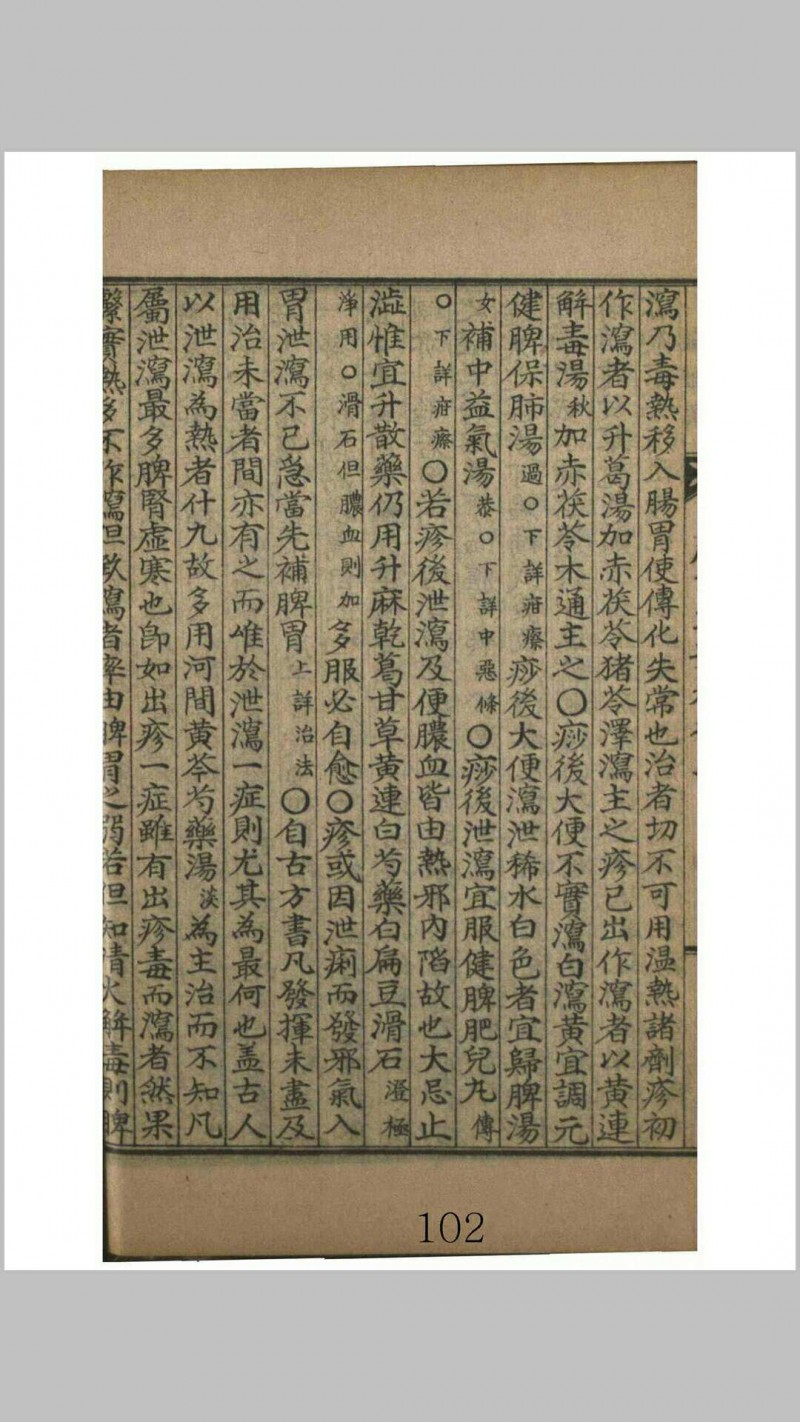 瀉乃毒熱移入腸胃使傳化失常也治者切不可用温熱諸劑疹初
作瀉者以升葛湯加赤茯苓猪苓澤瀉主之疹已出作瀉者以黄連
解毒湯秋加赤茯苓木通主之〇痧後大便不實瀉白瀉黄宜調元
健脾保肺湯過〇下詳疳療痧後大便瀉泄稀水白色者宜歸脾湯
女補中益氣湯恭〇下詳中惡條〇痧後泄瀉宜服健脾肥兒丸傳
〇下詳疳療〇若疹後泄瀉及便膿血皆由熱邪內陷故也大忌止
澁惟宜升散藥仍用升麻乾葛甘草黄連白芍藥白扁豆滑石澄極
淨用〇滑石但膿血則加多服必自愈〇疹或因泄痢而發邪氣入
胃泄瀉不已急當先補脾胃上詳治法〇自古方書凡發揮未盡及
用治未當者間亦有之而唯於泄瀉一症則尤其為最何也盖古人
以泄瀉為熱者什九故多用河間黄芩芍藥湯淡為主治而不知凡
屬泄瀉最多脾腎虛寒也卽如出疹一症雖有出疹毒而瀉者然果
繄實熱多不作瀉但致瀉者率由脾胃之弱若但知清火解毒則脾
102